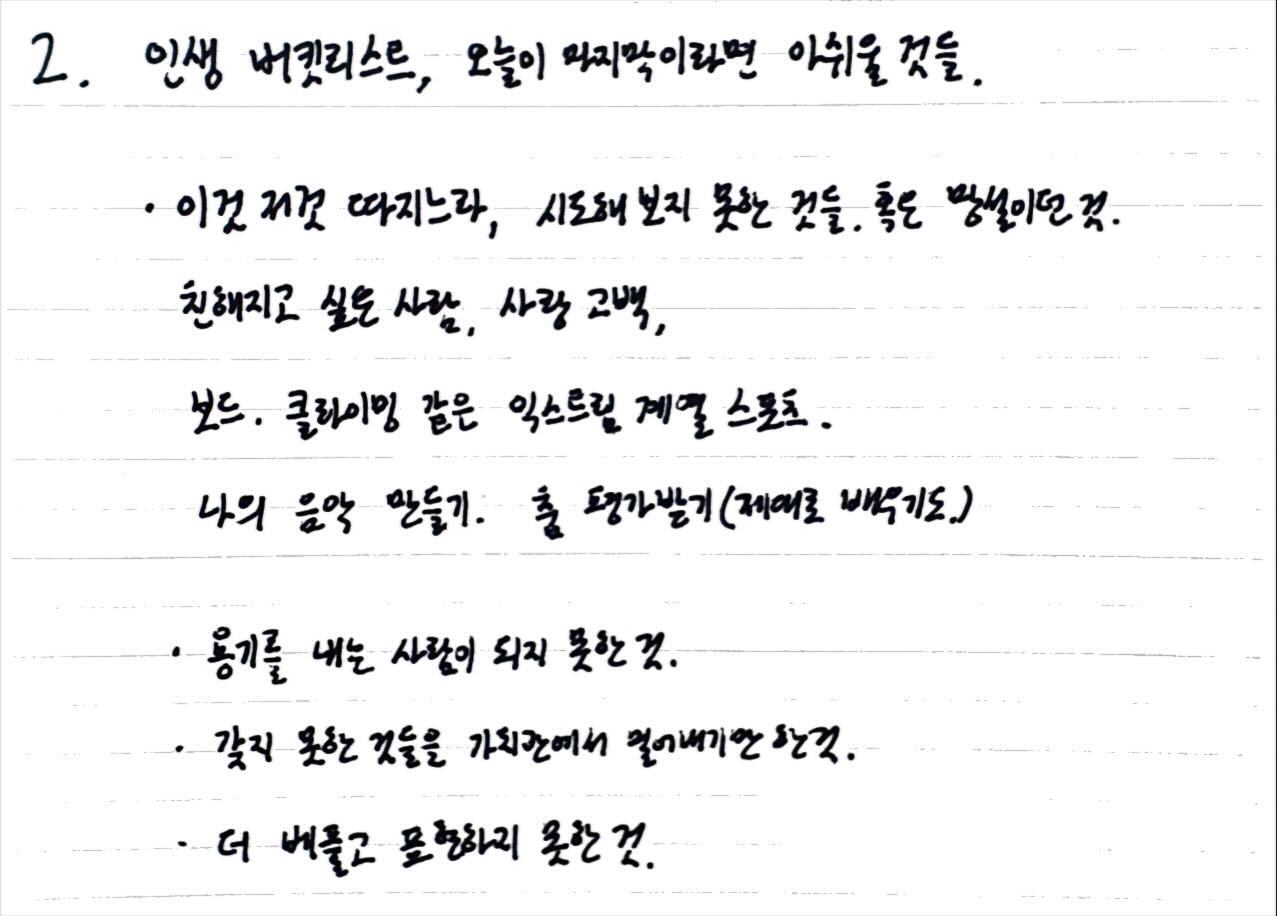 2. 인생 버킷리스트, 오늘이 마지막이라면 아쉬울 것들.
· 이것 저것 따지느라, 시도해 보지 못한 것들. 혹은 망설이던 것.
친해지고 싶은 사람, 사랑 고백,
보드. 클라이밍 같은 익스트림 계열 스포츠.
나의 음악 만들기. 춤 평가받기(제대로 배우기도.)
· 용기를 내는 사람이 되지 못한 것.
· 갖지 못한 것들을 가치관에서 밀어내기만 한것.
· 더 베풀고 표현하지 못한 것.